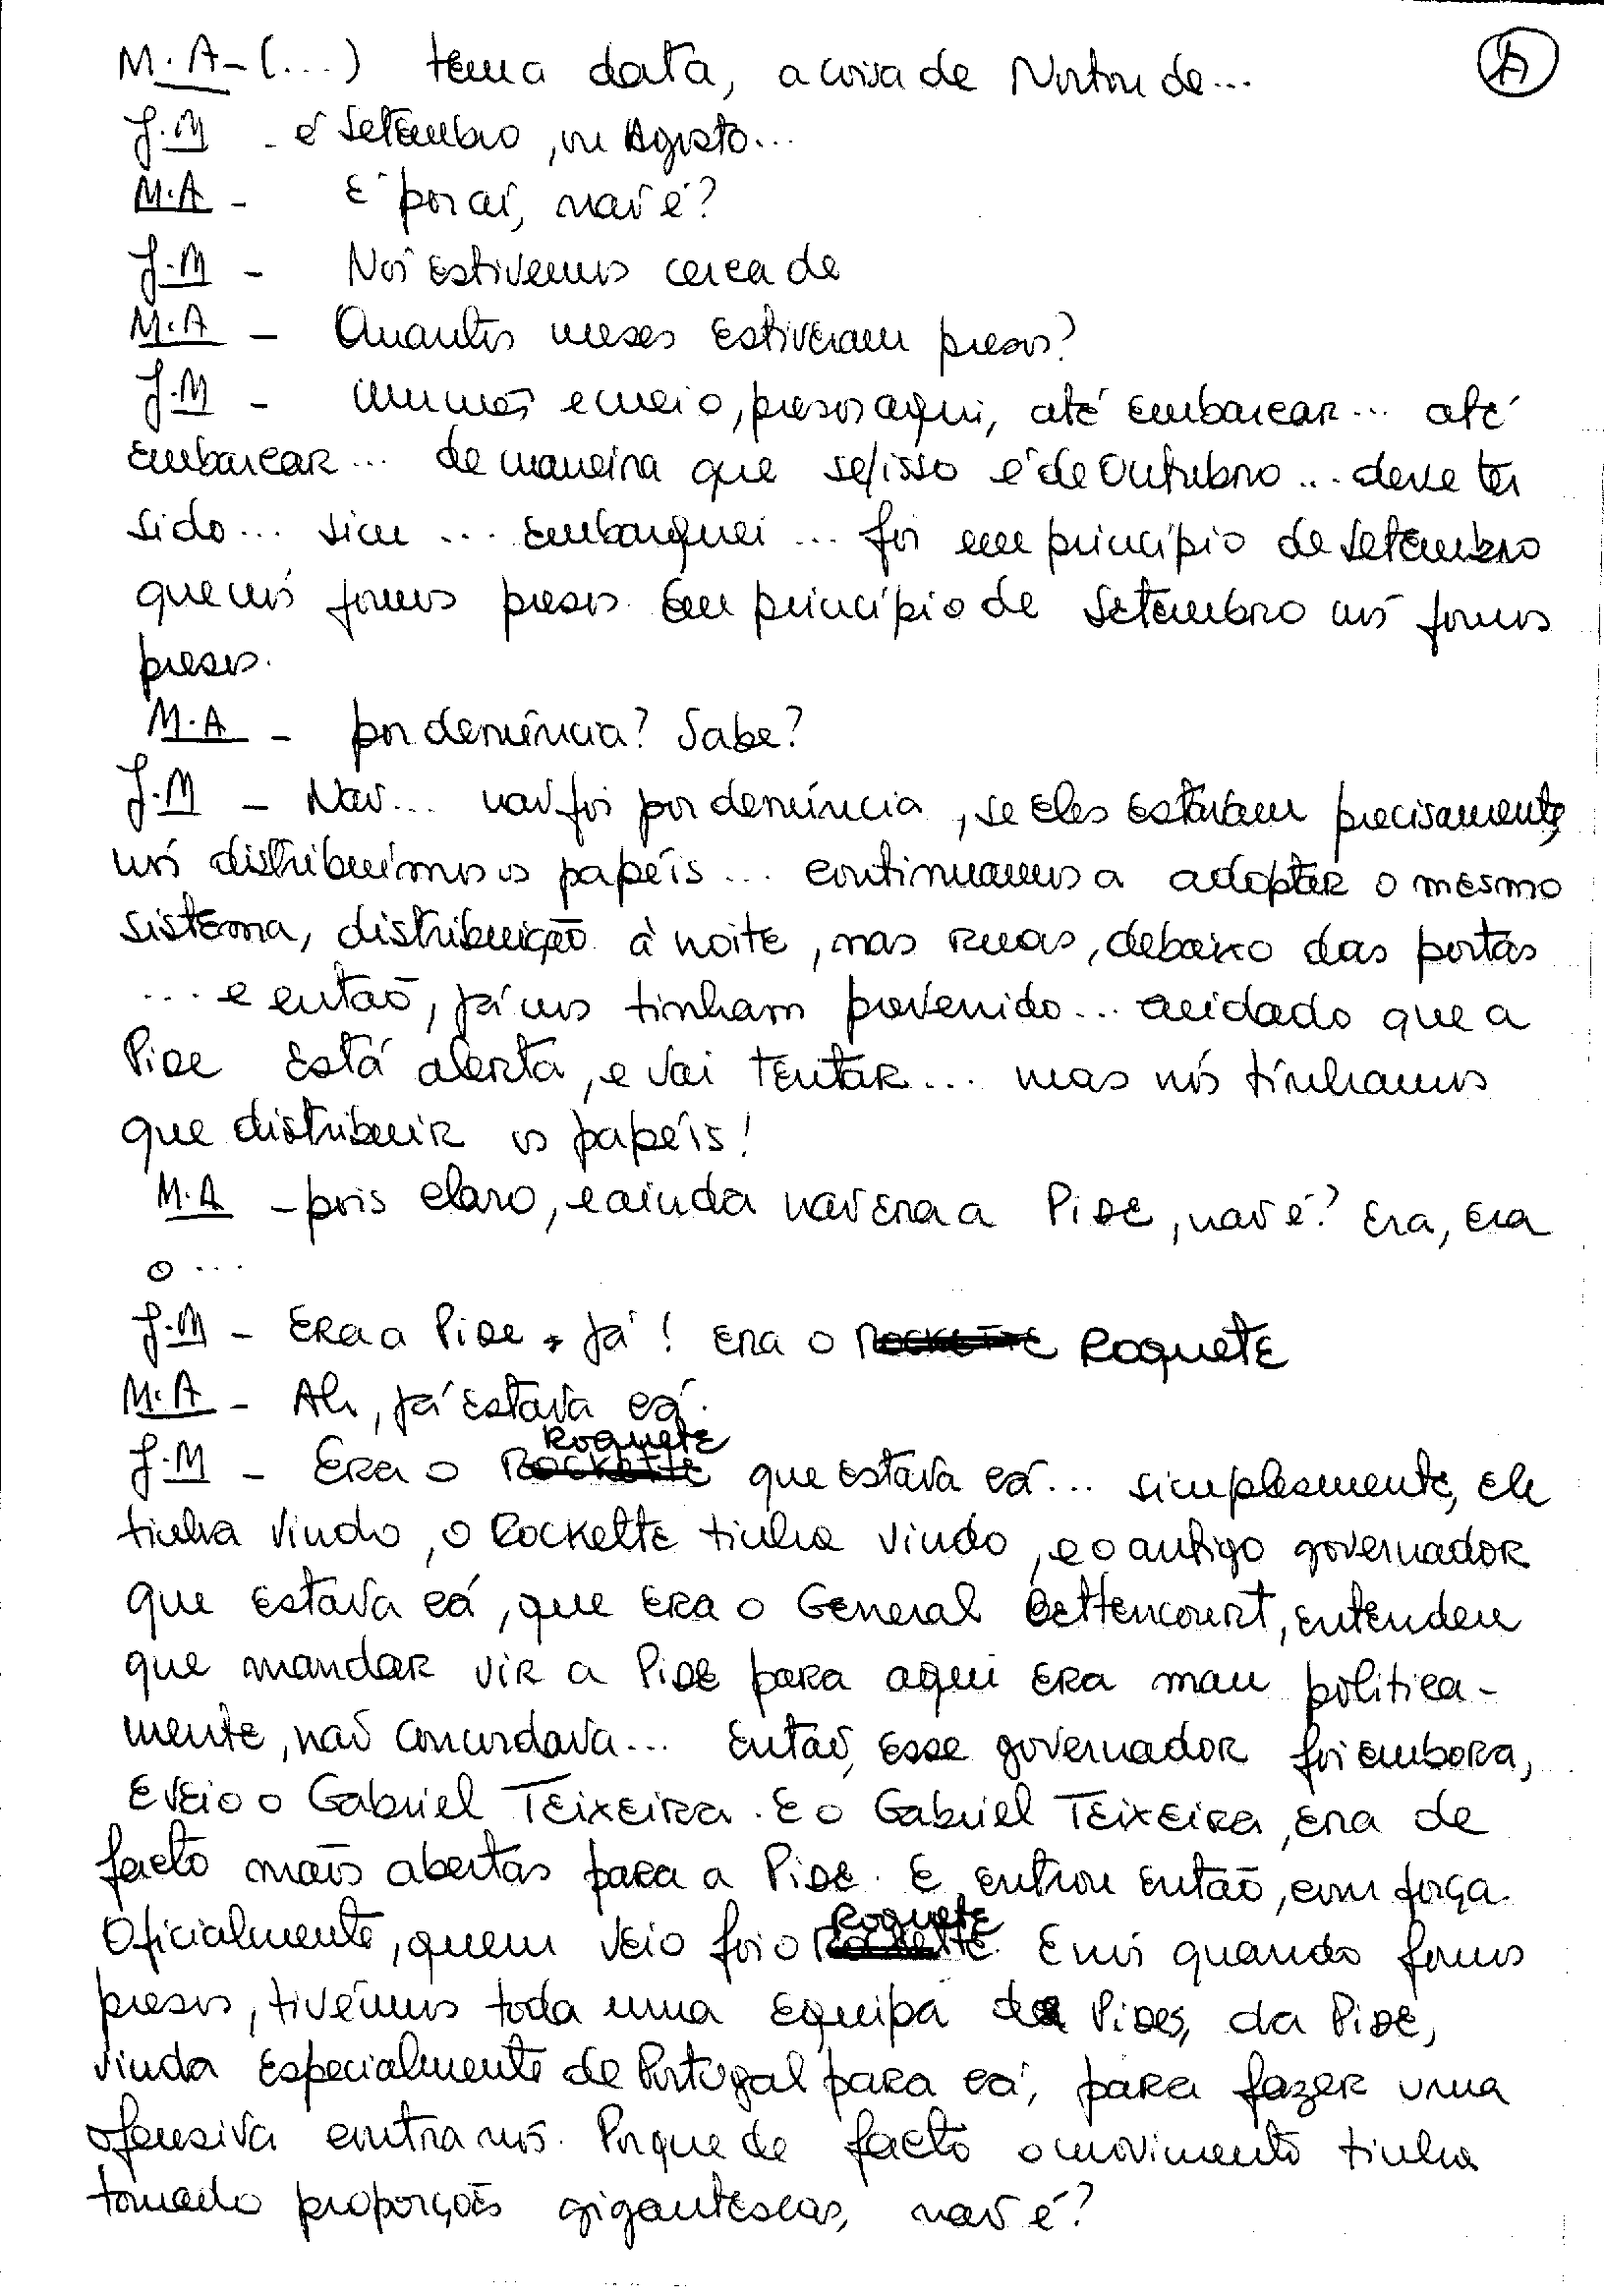 M.A - (...) tem a data, a coisa de Norton de...
J.M - é Setembro, ou Agosto...
M.A - E' por aí, não é?
J.M - Nós Estivemos cerca de
M.A - Quantos meses Estiveram presos?
J.M - Um mês e meio, presos aqui, até Embarcar... até
Embarcar... de maneira que se/isso é de Outubro... deve ter
sido... sim... Embarquei... foi em princípio de Setembro
que nós fomos presos. Em princípio de Setembro nós fomos
presos.
M.A - por denúncia? Sabe?
J.M - Não... não foi por denúncia, se Eles Estavam precisamente,
nós distribuímos os papéis... continuamos a adoptar o mesmo
sistema, distribuição à noite, nas ruas, debaixo das portas
... e então, já nos tinham prevenido... cuidado que a
Pide Está alerta, e vai Tentar... mas nós tínhamos
que distribuir os papéis!
M.A - pois claro, e ainda não Era a PiDE, não é? Era, Era
o...
J.M - Era a PiDE, já! Era o Rockette Roquete
M.A - Ah, já Estava cá.
Roquete
J.M - Era o Rockette que Estava cá... simplesmente, Ele
tinha vindo, o Rockette tinha vindo, e o antigo governador
que Estava cá, que Era o General Bettencourt, Entendeu
que mandar vir a PiDE para aqui Era mau politica-
mente, não concordava... Então, Esse governador foi Embora,
E veio o Gabriel Teixeira. E o Gabriel Teixeira, Era de
facto mãos abertas para a PiDE. E Entrou Então, com força.
Roquete
Oficialmente, quem veio foi o Rockette. E nós quando fomos
presos, tivémos toda uma Equipa de Pides, da PiDE,
vinda Especialmente de Portugal para cá, para fazer uma
ofensiva contra nós. Porque de facto o movimento tinha
tomado proporções gigantescas, não é?